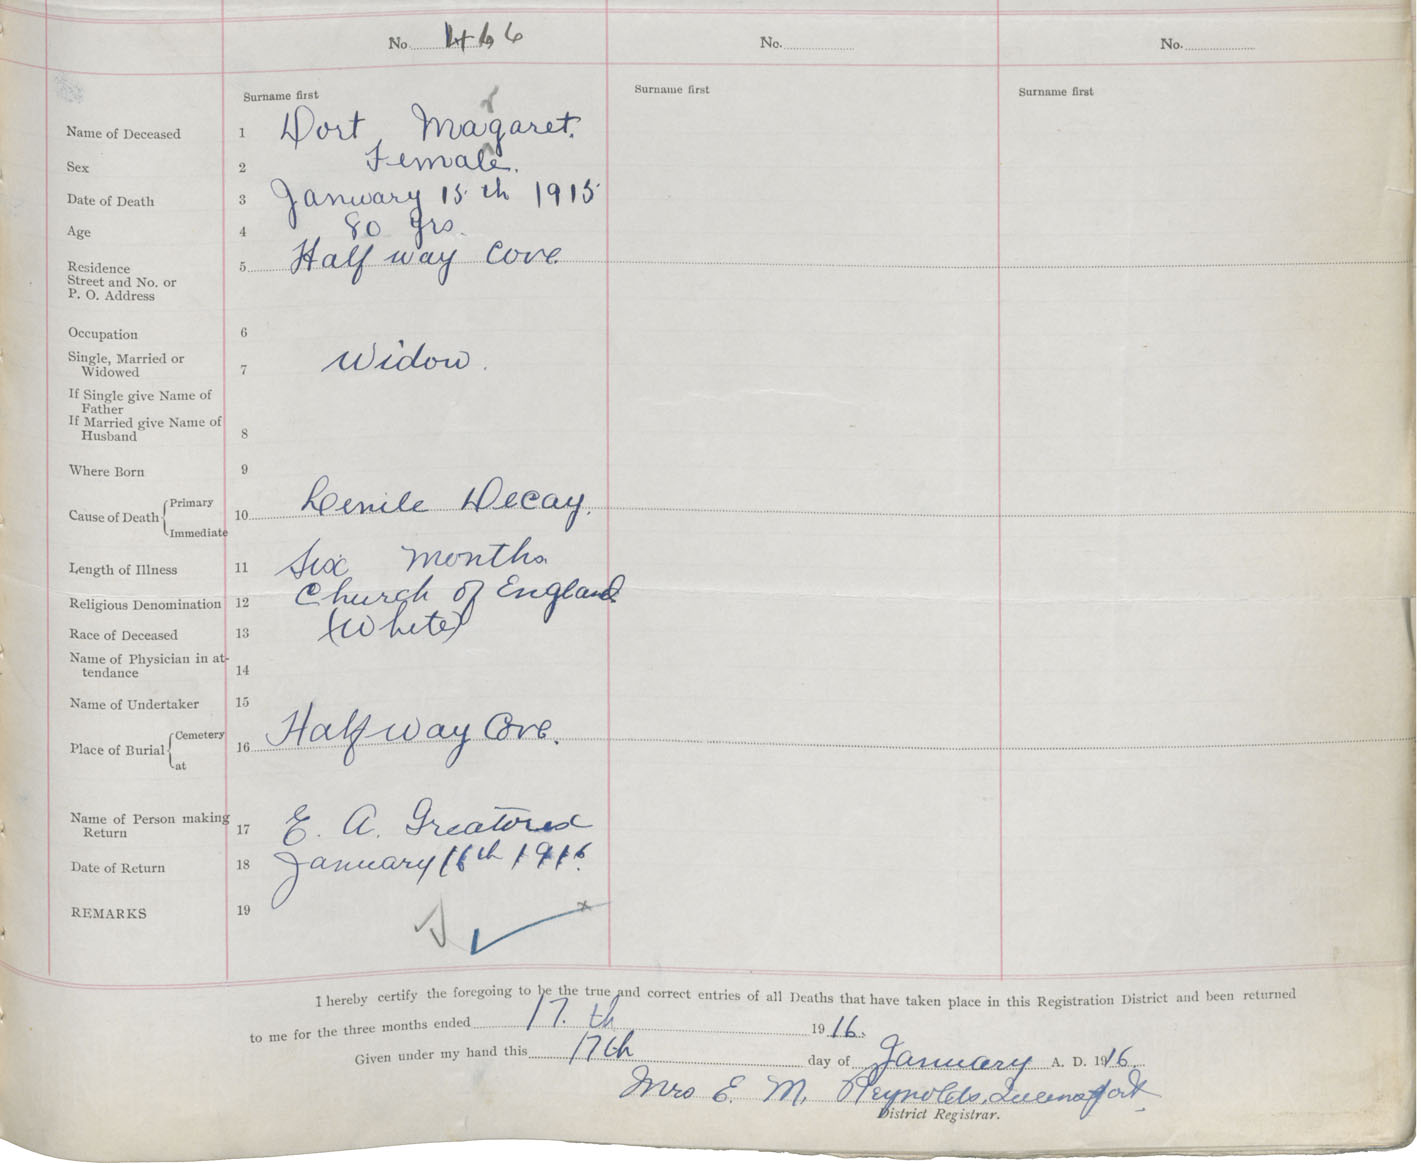 No. 466 No. No.
Surname first Surname first Surname first
Name of Deceased 1 Dort Magaret. r
Sex 2 Female.
Date of Death 3 January 15th 1915
Age 4 80 yrs.
Residence 5 Half way Cove
Street and No. or
P. O. Address
Occupation 6
Single, Married or
Widowed 7 Widow.
If Single give Name of
Father
If Married give Name of
Husband 8
Where Born 9
Cause of Death Primary 10 Senile Decay.
Immediate
Length of Illness 11 Six months
Religious Denomination 12 Church of England
Race of Deceased 13 (White)
Name of Physician in at-
tendance 14
Name of Undertaker 15
Place of Burial Cemetery 16 Half way Cove.
at
Name of Person making
Return 17 E. A. Greatorex
Date of Return 18 January 16th 1916.
REMARKS 19
I hereby certify the foregoing to be the true and correct entries of all Deaths that have taken place in this Registration District and been returned
to me for the three months ended 17.th 1916.
Given under my hand this 17th day of January A. D. 1916.
Mrs E. M. Reynolds, Queensport.
District Registrar.